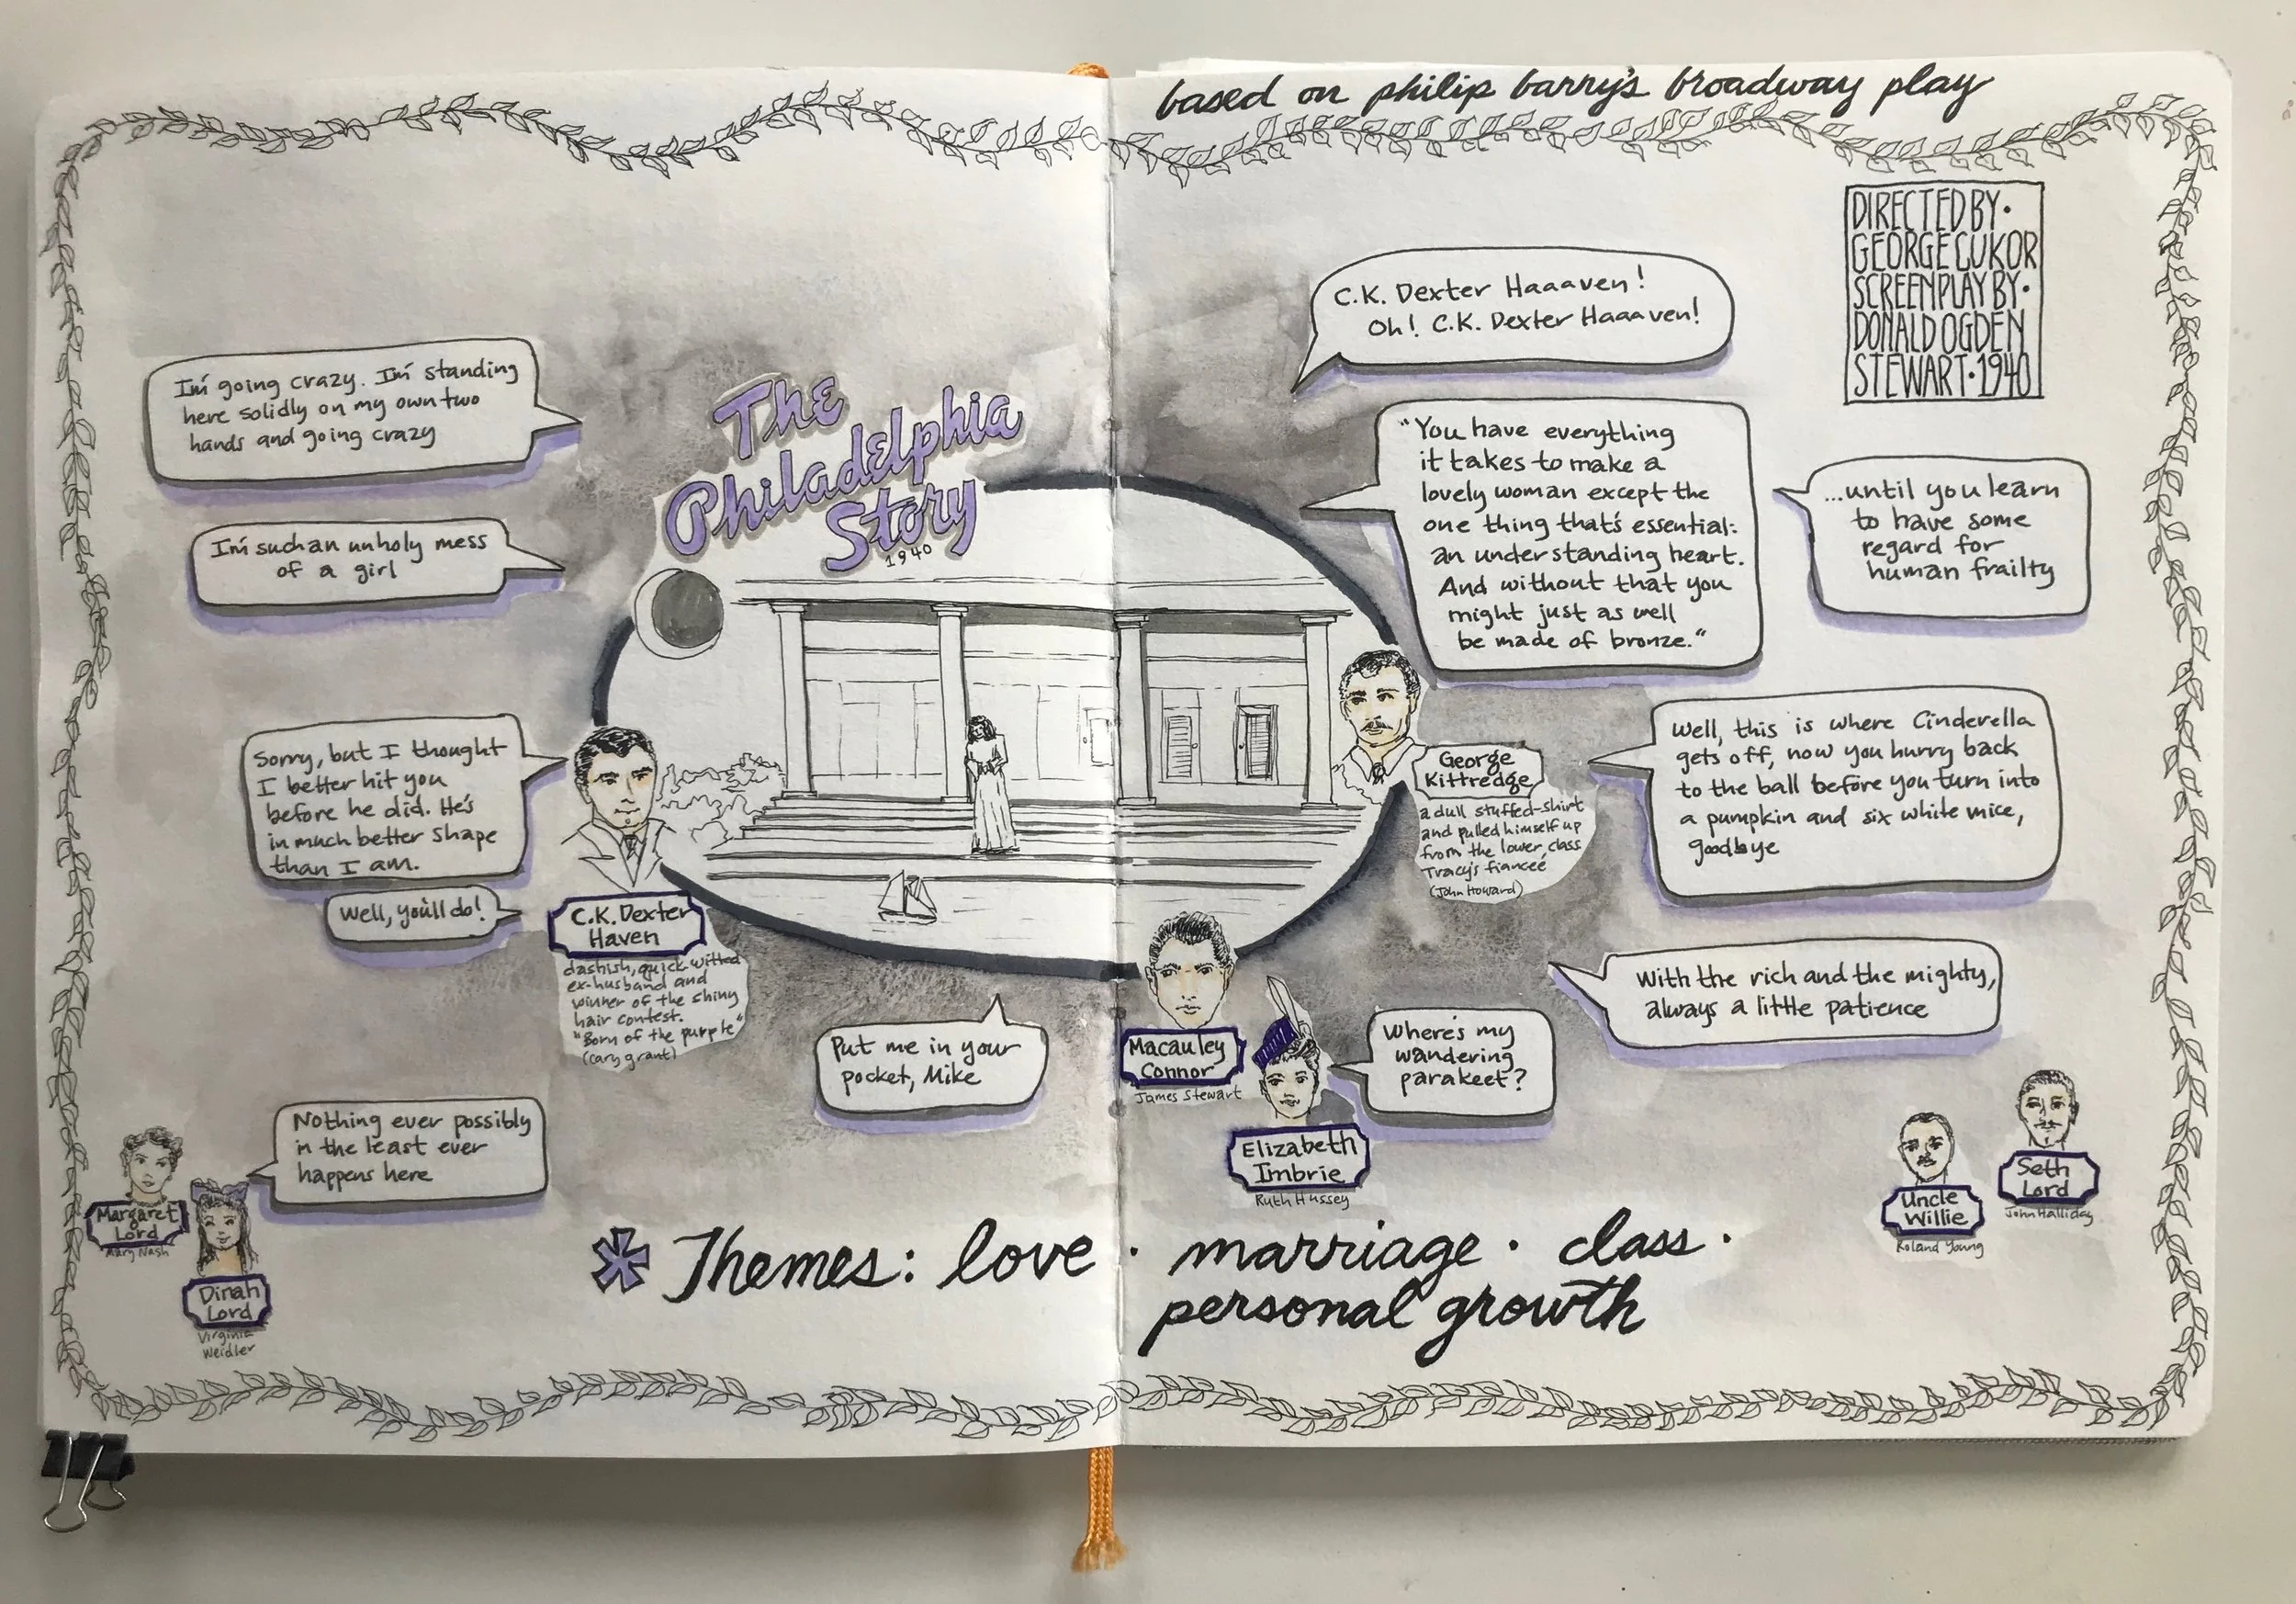 based on philip barry's broadway play
DIRECTED BY·
GEORGE CUKOR
SCREENPLAY BY·
DONALD OGDEN
STEWART·1940
C.K. Dexter Haaaven!
Oh! C.K. Dexter Haaaven!
I'm going crazy. I'm standing
here solidly on my own two
hands and going crazy
The
Philadelphia
Story
1940
"You have everything
it takes to make a
lovely woman except the
one thing that's essential:
an understanding heart.
And without that you
might just as well
be made of bronze."
...until you learn
to have some
regard for
human frailty
I'm such an unholy mess
of a girl
Sorry, but I thought
I better hit you
before he did. He's
in much better shape
than I am.
Well, you'll do!
C.K. Dexter
Haven
dashish, quick witted
ex-husband and
winner of the shiny
hair contest.
"Born of the purple"
(cary grant)
George
Kittredge
a dull stuffed-shirt
and pulled himself up
from the lower class
Tracy's fianceé
(John Howard)
Well, this is where Cinderella
gets off, now you hurry back
to the ball before you turn into
a pumpkin and six white mice,
goodbye
With the rich and the mighty,
always a little patience
Put me in your
pocket, Mike
Macauley
Connor
James Stewart
Where's my
wandering
parakeet?
Elizabeth
Imbrie
Ruth Hussey
Nothing ever possibly
in the least ever
happens here
Margaret
Lord
Mary Nash
Dinah
Lord
Virginia
Weidler
Uncle
Willie
Roland Young
Seth
Lord
John Halliday
* Themes: love · marriage · class ·
personal growth